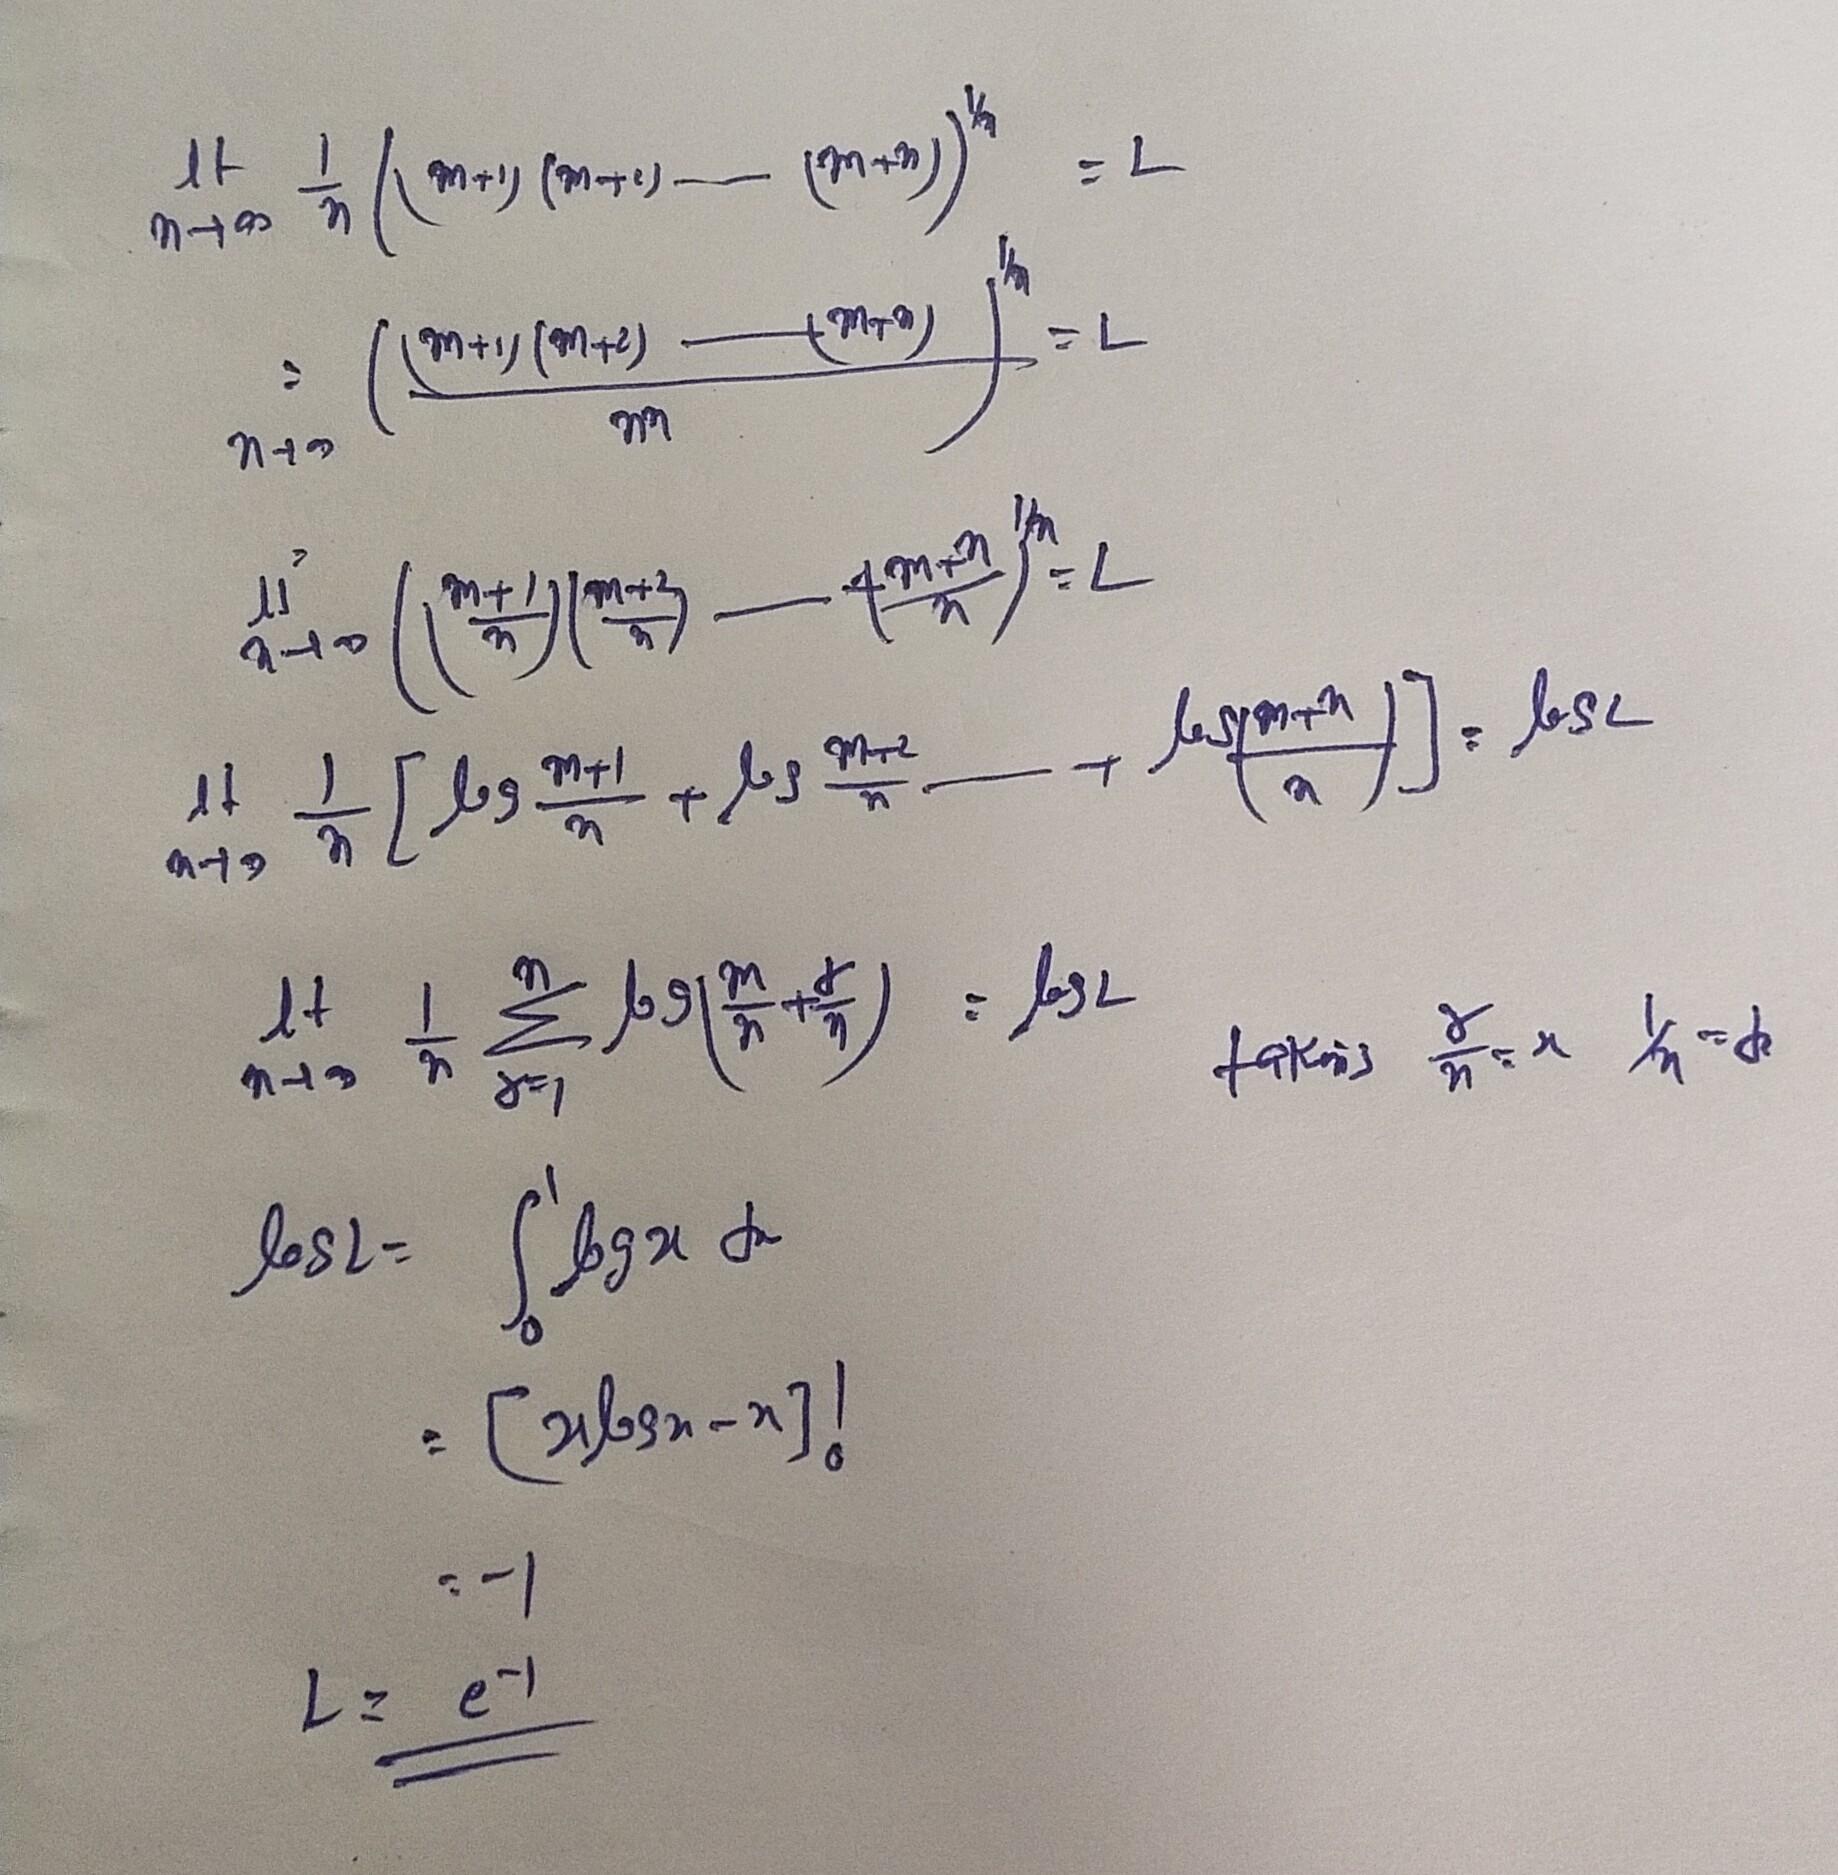 lt n→∞ 1/n ((m+1)(m+2) — (m+n))^1/n = L
= n→∞ ((m+1)(m+2) — (m+n) / n^n)^1/n = L
= lt n→∞ ((m+1/n)(m+2/n) — (m+n/n))^1/n = L
lt n→∞ 1/n [log m+1/n + log m+2/n — + log(m+n/n)] = log L
lt n→∞ 1/n Σ r=1 n log(m/n + r/n) = log L taking r/n = x 1/n = dx
log L = ∫₀¹ log x dx
= [x log x - x]₀¹
= -1
L = e^-1